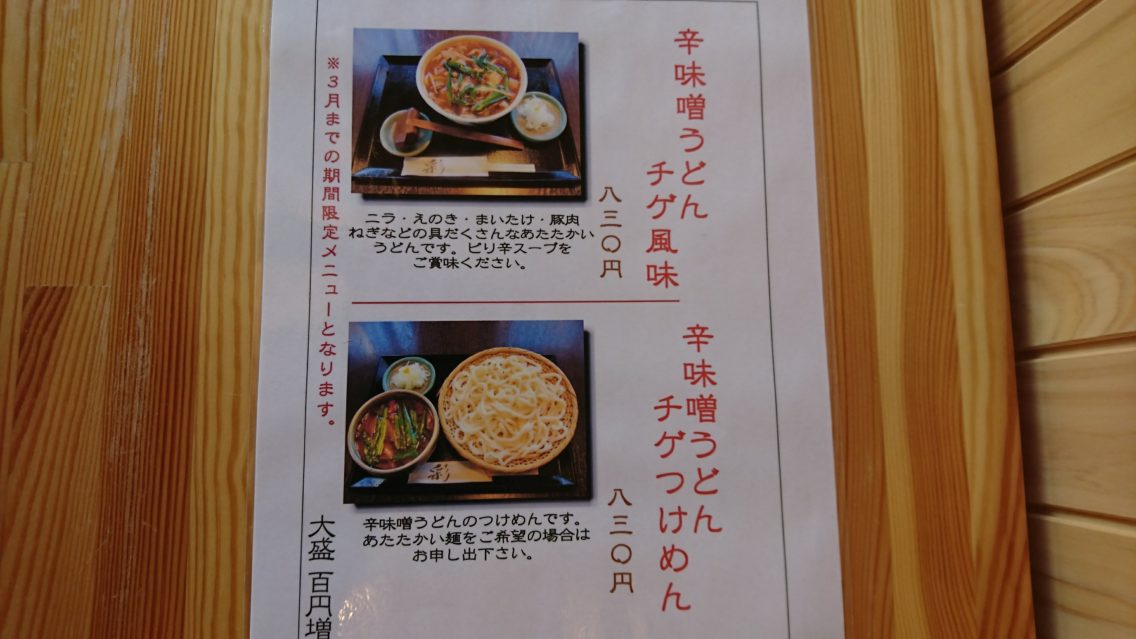 辛味噌うどん
チゲ風味
八三〇円
ニラ・えのき・まいたけ・豚肉
ねぎなどの具だくさんなあたたかい
うどんです。ピリ辛スープを
ご賞味ください。
彩
辛味噌うどん
チゲつけめん
八三〇円
辛味噌うどんのつけめんです。
あたたかい麺をご希望の場合は
お申し出下さい。
彩
※3月までの期間限定メニューとなります。
大盛 百円増